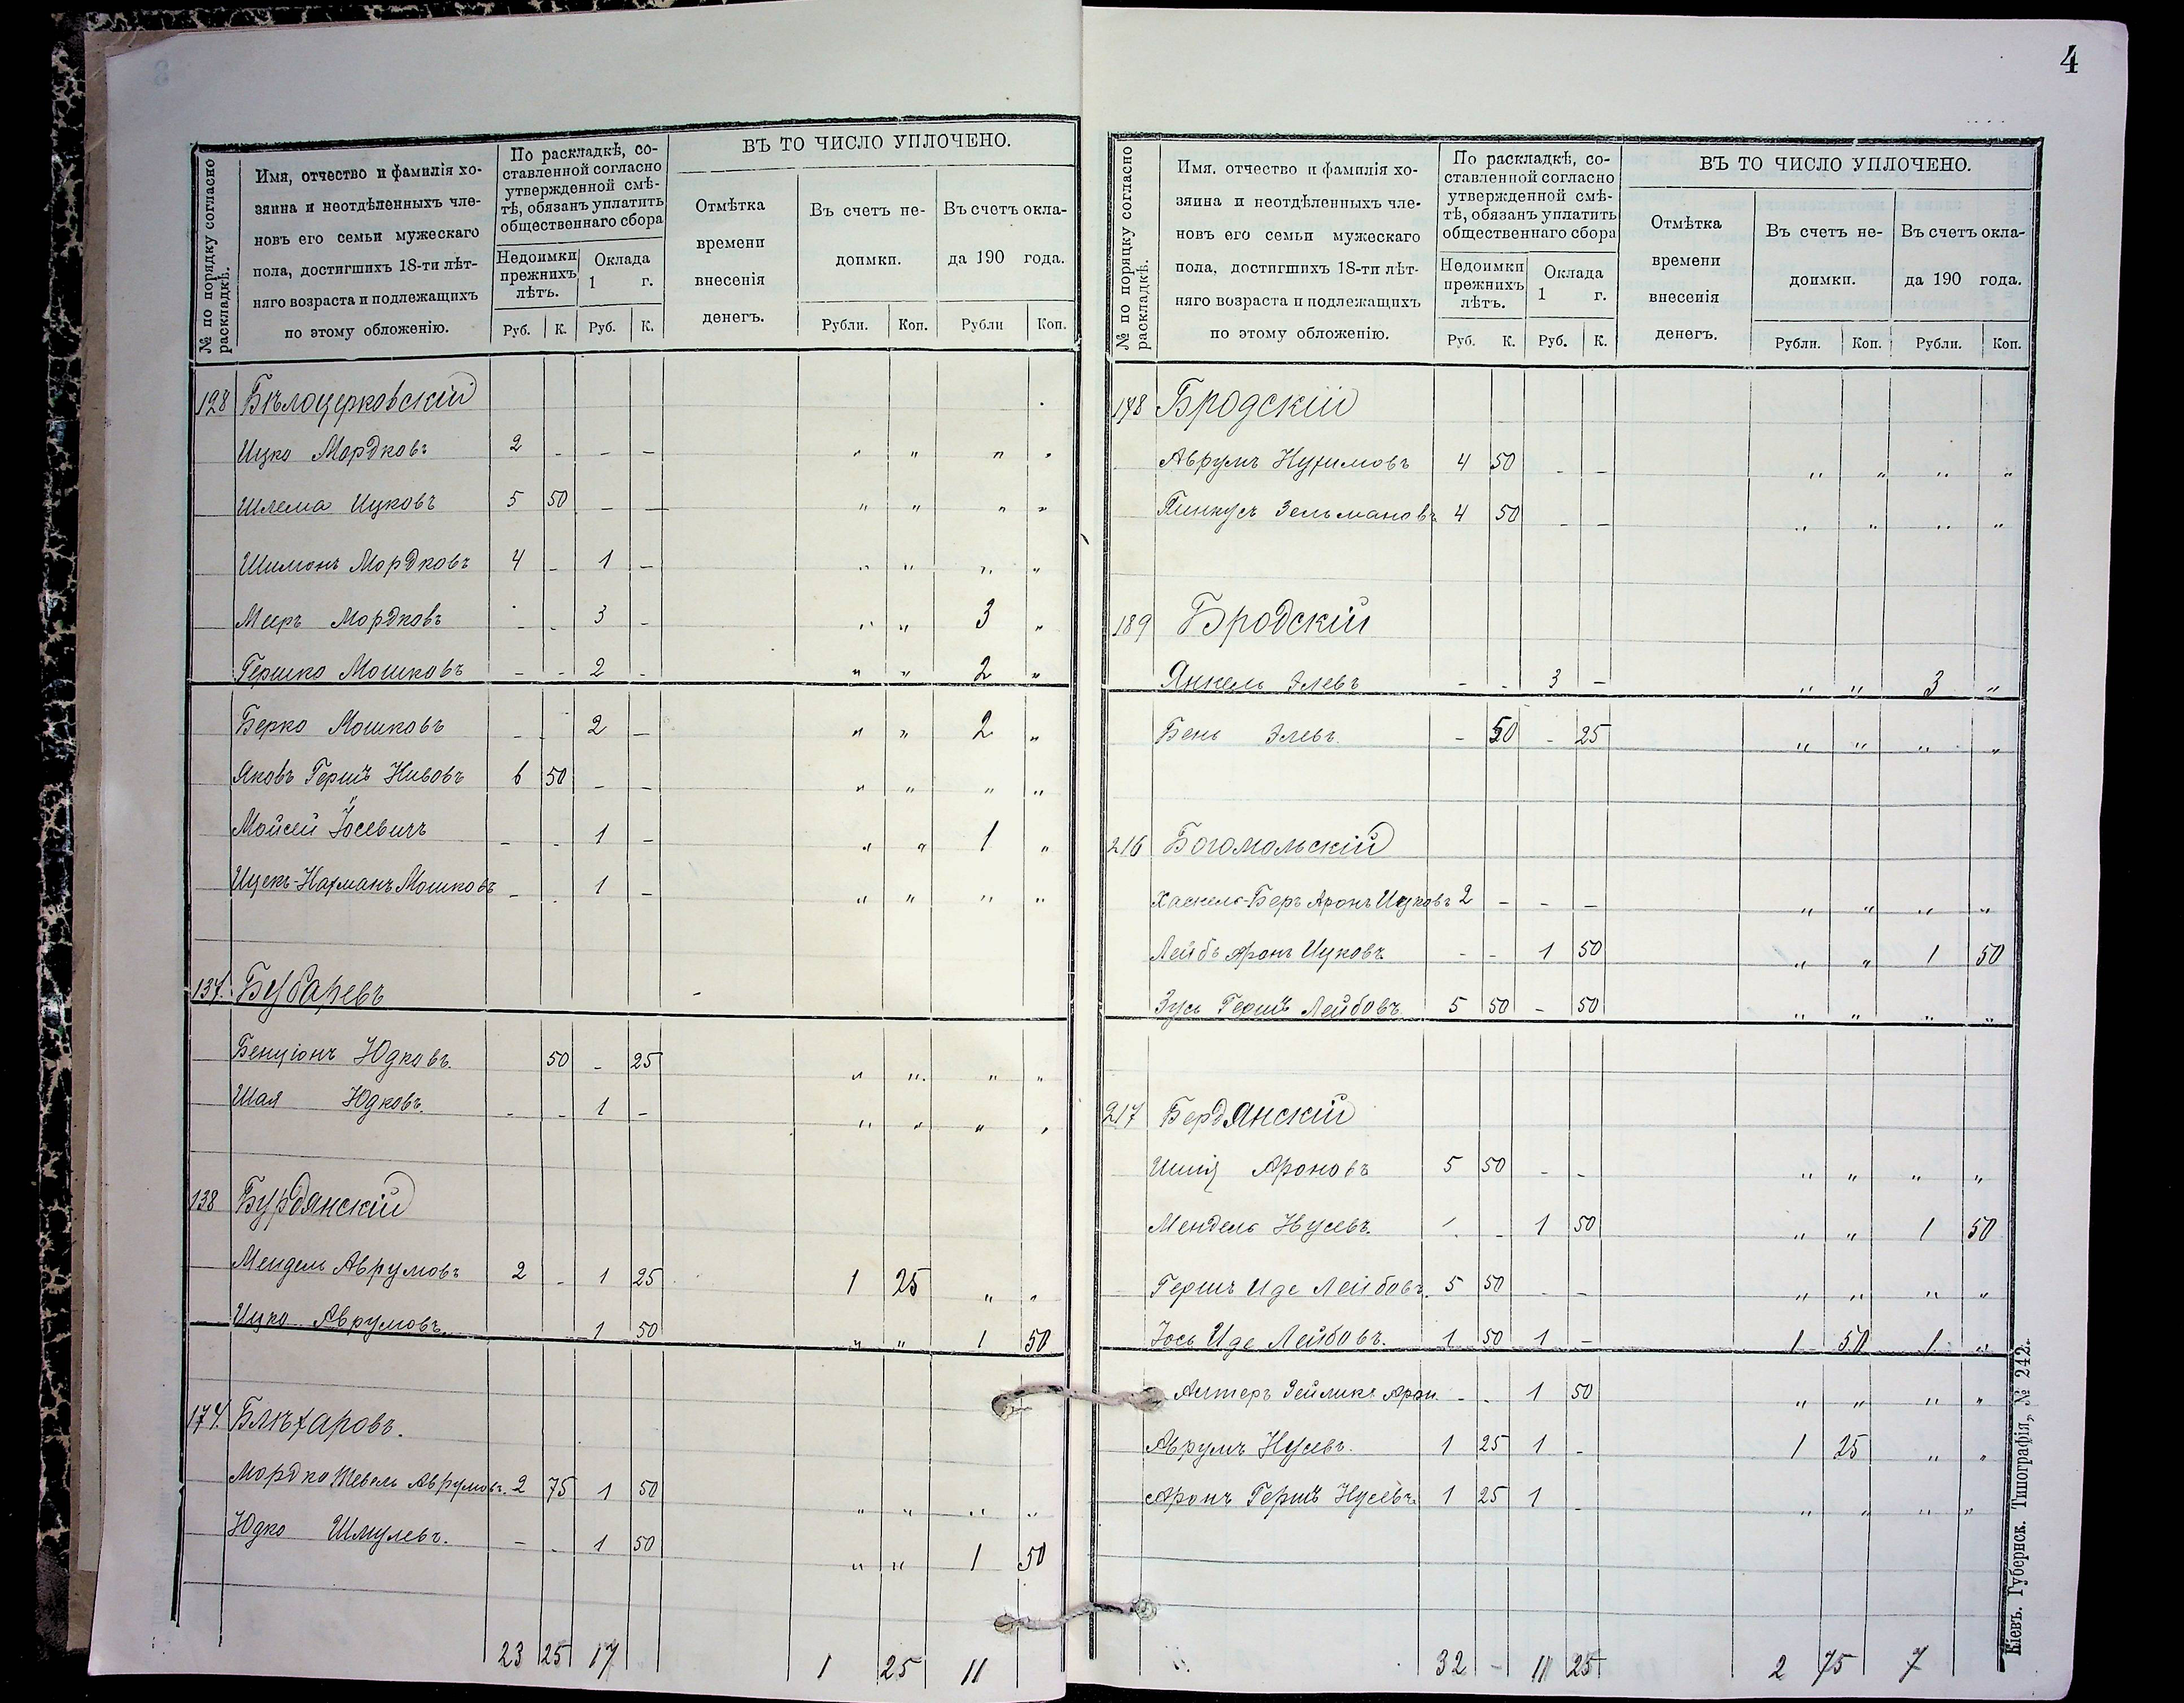 4
№ по порядку согласно раскладкѣ.
Имя, отчество и фамилія хо-
зяина и неотдѣленныхъ чле-
новъ его семьи мужескаго
пола, достигшихъ 18-ти лѣт-
няго возраста и подлежащихъ
по этому обложенію.
По раскладкѣ, со-
ставленной согласно
утвержденной смѣ-
тѣ, обязанъ уплатить
общественнаго сбора
Недоимки прежнихъ лѣтъ.
Оклада 1 г.
Руб. К. Руб. К.
ВЪ ТО ЧИСЛО УПЛОЧЕНО.
Отмѣтка
времени
внесенія
денегъ.
Въ счетъ не-
доимки.
Въ счетъ окла-
да 190 года.
Рубли. Коп. Рубли Коп.
128 Бѣлоцерковскій
Ицко Мордковъ 2 - - - " " " "
Шлема Ицковъ 5 50 - - " " " "
Шимонъ Мордковъ 4 - 1 - " " " "
Мееръ Мордковъ - - 3 - " " 3 "
Гершко Мошковъ - - 2 - " " 2 "
Берко Мошковъ - - 2 - " " 2 "
Яковъ Гершъ 6 50 - - " " " "
Мойсей Іосевичъ - - 1 - " " 1 "
Ицекъ-Нахманъ Мошковъ - - 1 - " " " "
137.
Бенціонъ Юдковъ. 50 - 25 " " " "
Шая Юдковъ. - - 1 - " " " "
138 Бурдянскій
Мендель Аврумовъ 2 - 1 25 1 25 " "
Ицко Аврумовъ. 1 50 " " 1 50
174. Блѣхаровъ.
Мордко Шевель Аврумовъ. 2 75 1 50 " " " "
Юдко Шмулевъ. - - 1 50 " " 1 50
23 25 17 1 25 11
№ по порядку согласно раскладкѣ.
Имя. отчество и фамилія хо-
зяина и неотдѣленныхъ чле-
новъ его семьи мужескаго
пола, достигшихъ 18-ти лѣт-
няго возраста и подлежащихъ
по этому обложенію.
По раскладкѣ, со-
ставленной согласно
утвержденной смѣ-
тѣ, обязанъ уплатить
общественнаго сбора
Недоимки прежнихъ лѣтъ.
Оклада 1 г.
Руб. К. Руб. К.
ВЪ ТО ЧИСЛО УПЛОЧЕНО.
Отмѣтка
времени
внесенія
денегъ.
Въ счетъ не-
доимки.
Въ счетъ окла-
да 190 года.
Рубли. Коп. Рубли. Коп.
178 Бродскій
Аврумъ Нухимовъ 4 50 - - " " " "
Пинкусъ Зельмановъ 4 50 - - " " " "
189 Бродскій
Янкель Элевъ - - 3 - " " 3 "
Бень Элевъ. - 50 - 25 " " " "
216 Богомольскій
Хаскель-Беръ Аронъ Ицковъ 2 - - - " " " "
Лейбъ Аронъ Ицковъ - - 1 50 " " 1 50
Зусь Гершъ Лейбовъ. 5 50 - 50 " " " "
217 Бердянскій
Ароновъ 5 50 - - " " " "
Мендель Нусевъ. - - 1 50 " " 1 50
Гершъ Иде Лейбовъ. 5 50 - - " " " "
Іось Иде Лейбовъ. 1 50 1 - 1 50 1 "
Алтеръ Зейликъ Арон. - - 1 50 " " " "
Аврумъ Нусевъ. 1 25 1 - 1 25 " "
Аронъ Гершъ Нусевъ 1 25 1 - " " " "
32 - 11 25 2 75 7
Кіевъ. Губернск. Типографія, № 242.